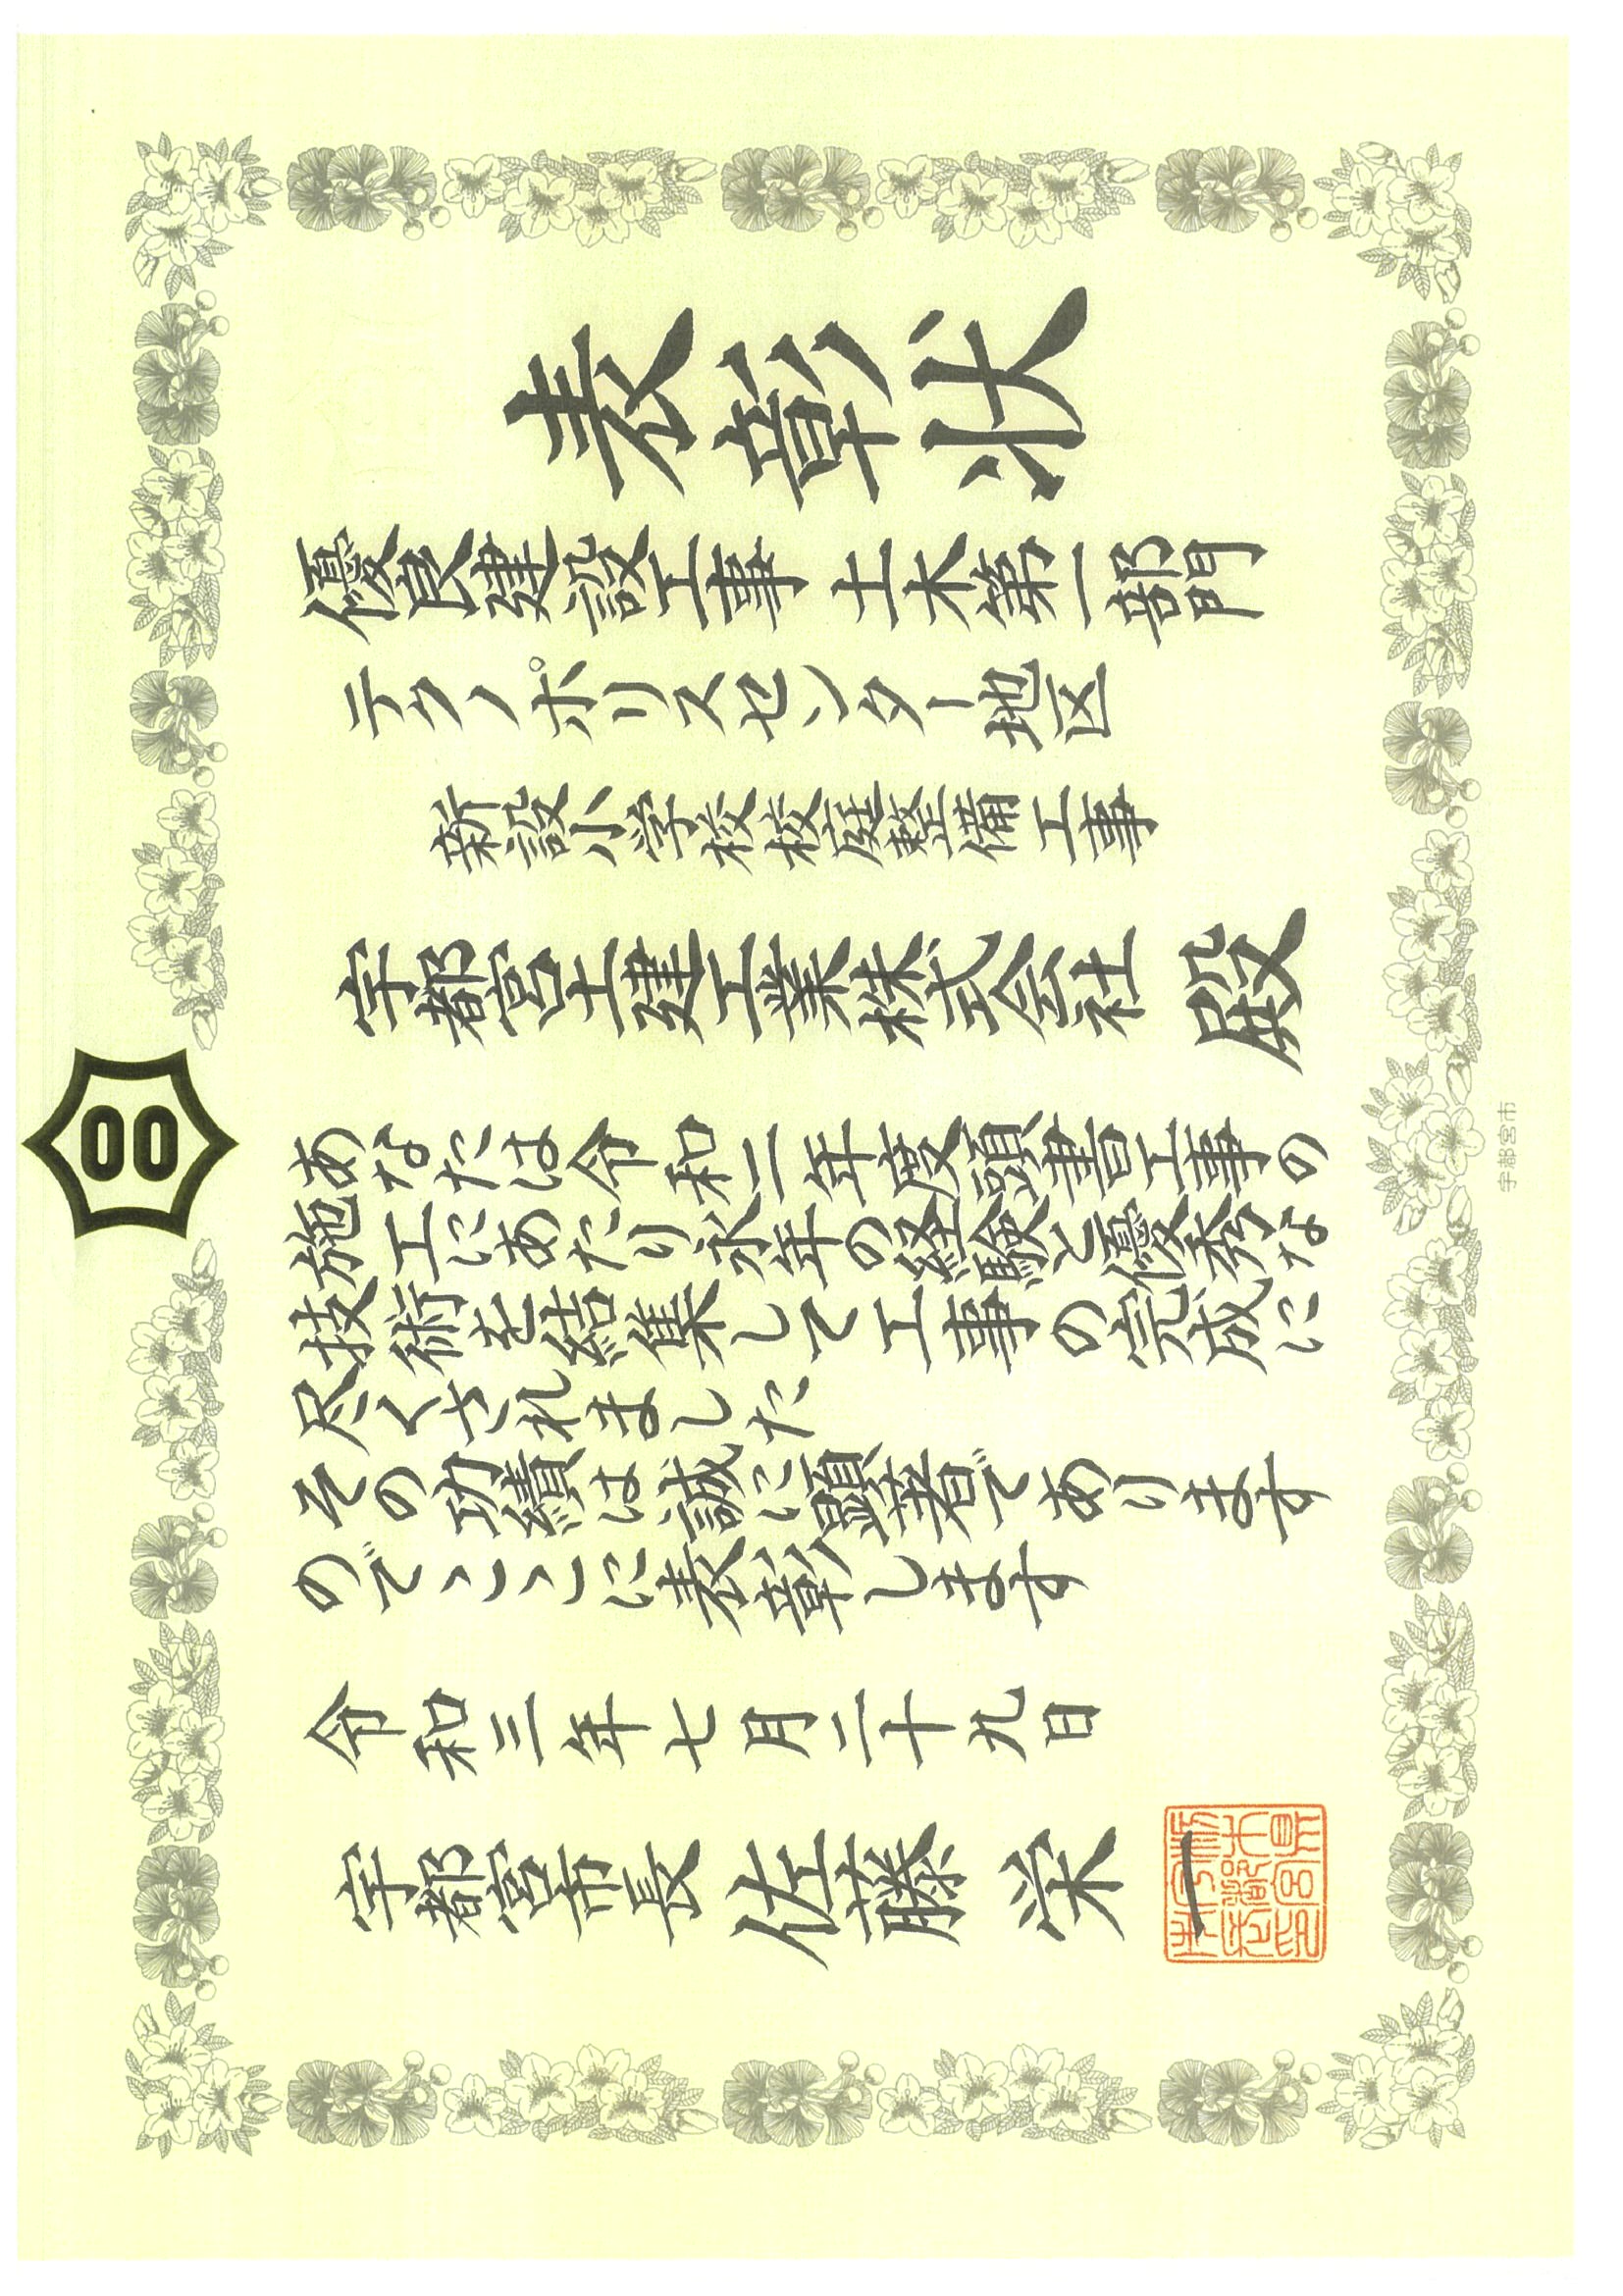 表彰状
優良建設工事 土木第一部門
テクノポリスセンター地区
新設小学校校庭整備工事
宇都宮土建工業株式会社 殿
あなたは令和二年度頭書工事の
施工にあたり永年の経験と優秀な
技術を結集して工事の完成に
尽くされました
その功績は誠に顕著であります
のでここに表彰します
令和三年七月二十九日
宇都宮市長 佐藤栄一
宇都宮市